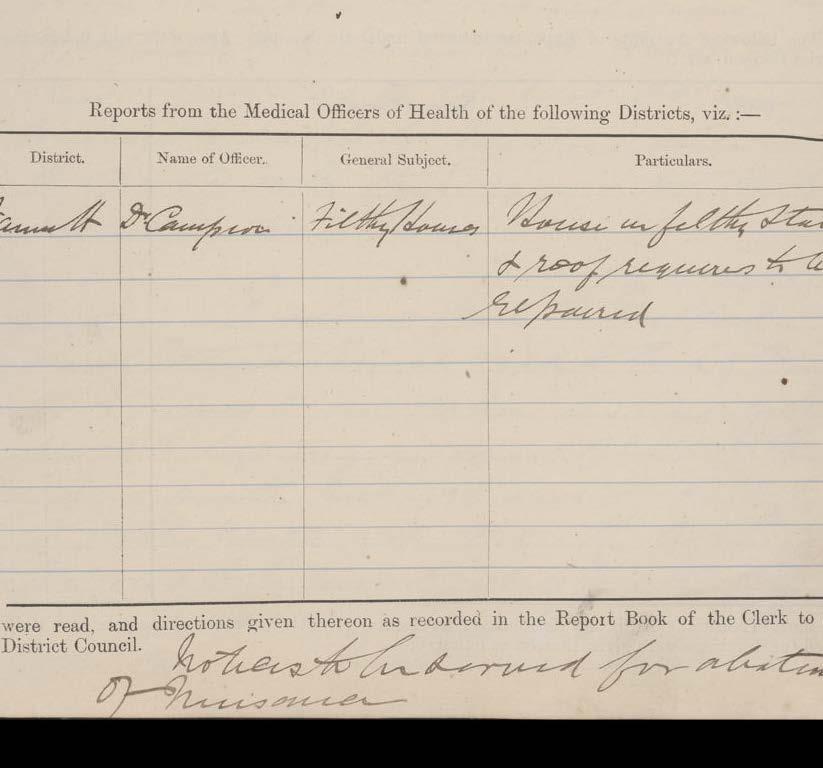 Reports from the Medical Officers of Health of the following Districts, viz. :—
District. Name of Officer. General Subject. Particulars.
Dr Campion Filthy Houses House in filthy
& roof requires to
repaired
were read, and directions given thereon as recorded in the Report Book of the Clerk to
District Council.
Notices to be served for
of Nuisance